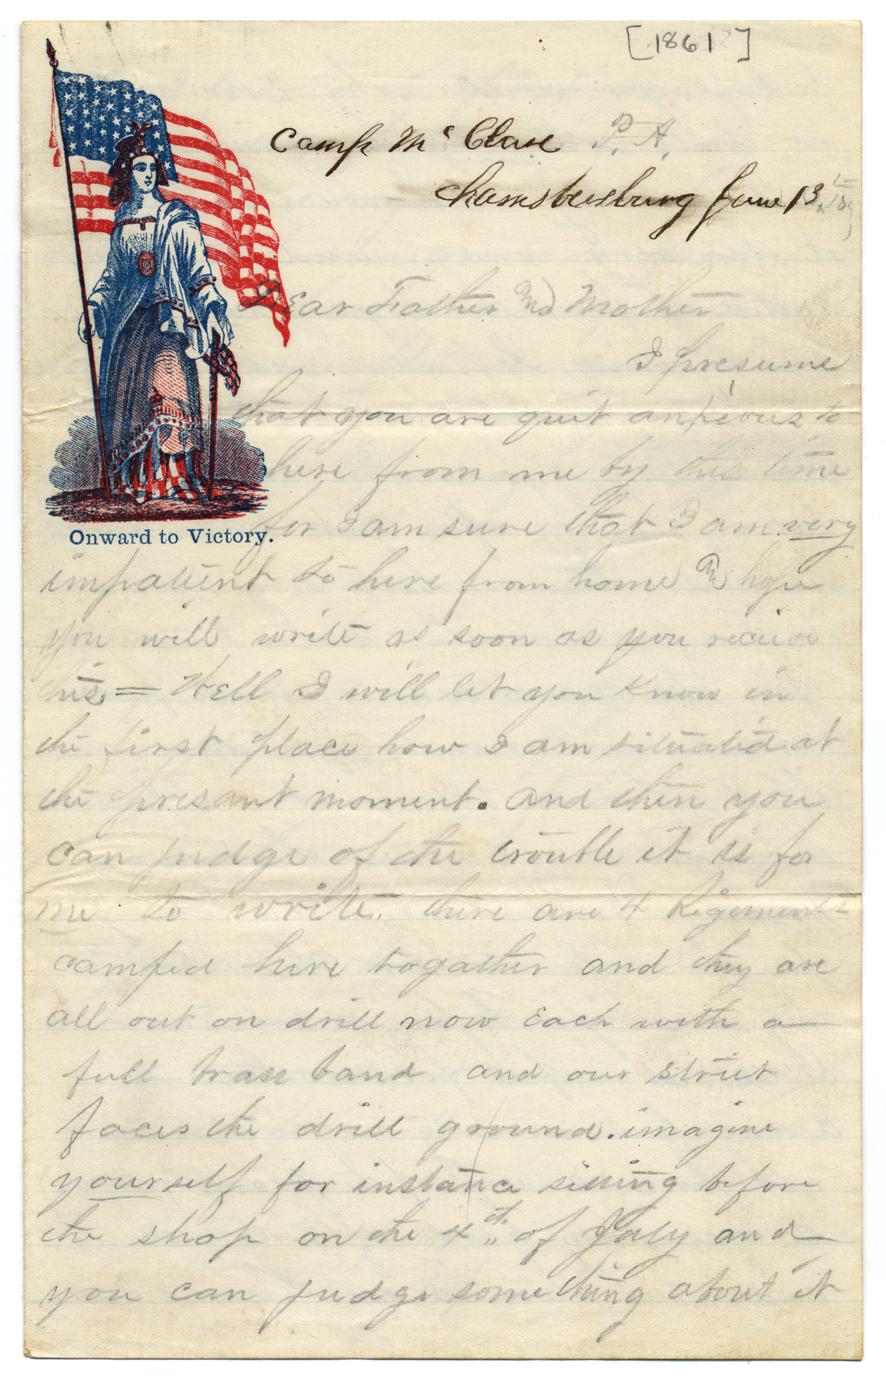 [1861?]
Camp Mc Clure P. A.
Chambersburg June 13
Dear Father and Mother
I presume
that you are quit anxious to
here from me by this time
for I am sure that I am very
Onward to Victory.
impatient to here from home & hope
you will write as soon as you recieve
this = Well I will let you know in
the first place how I am situated at
the presant moment. and then you
can judge of the trouble it is for
me to write. there are 4 Regiments
camped here togather and they are
all out on drill now Each with a
full brass band and our street
faces the drill ground. imagine
yourself for instance sitting before
the shop on the 4th of July and
you can judge something about it